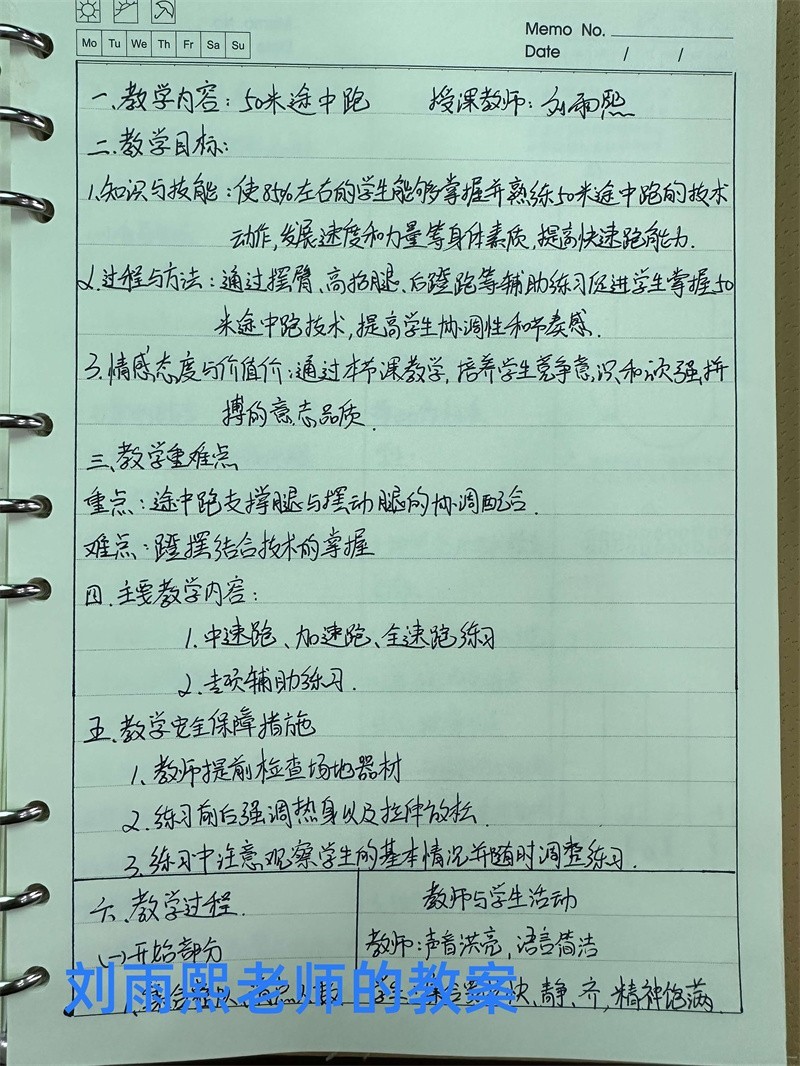 Memo No.
Mo Tu We Th Fr Sa Su
Date / /
一.教学内容：50米途中跑 授课教师：刘雨熙
二.教学目标：
1.知识与技能：使85%左右的学生能够掌握并熟练50米途中跑的技术
动作,发展速度和力量等身体素质,提高快速跑能力.
2.过程与方法：通过摆臂、高抬腿、后蹬跑等辅助练习促进学生掌握50
米途中跑技术,提高学生协调性和节奏感.
3.情感态度与价值价:通过本节课教学,培养学生竞争意识和顽强拼
搏的意志品质.
三.教学重难点
重点：途中跑支撑腿与摆动腿的协调配合.
难点：蹬摆结合技术的掌握
四.主要教学内容：
1.中速跑、加速跑、全速跑练习
2.专项辅助练习.
五.教学安全保障措施
1.教师提前检查场地器材
2.练习前后强调热身以及拉伸放松
3.练习中注意观察学生的基本情况并随时调整练习.
六.教学过程. 教师与学生活动
(一)开始部分 教师:声音洪亮,语言简洁
快、静、齐,精神饱满.
刘雨熙老师的教案